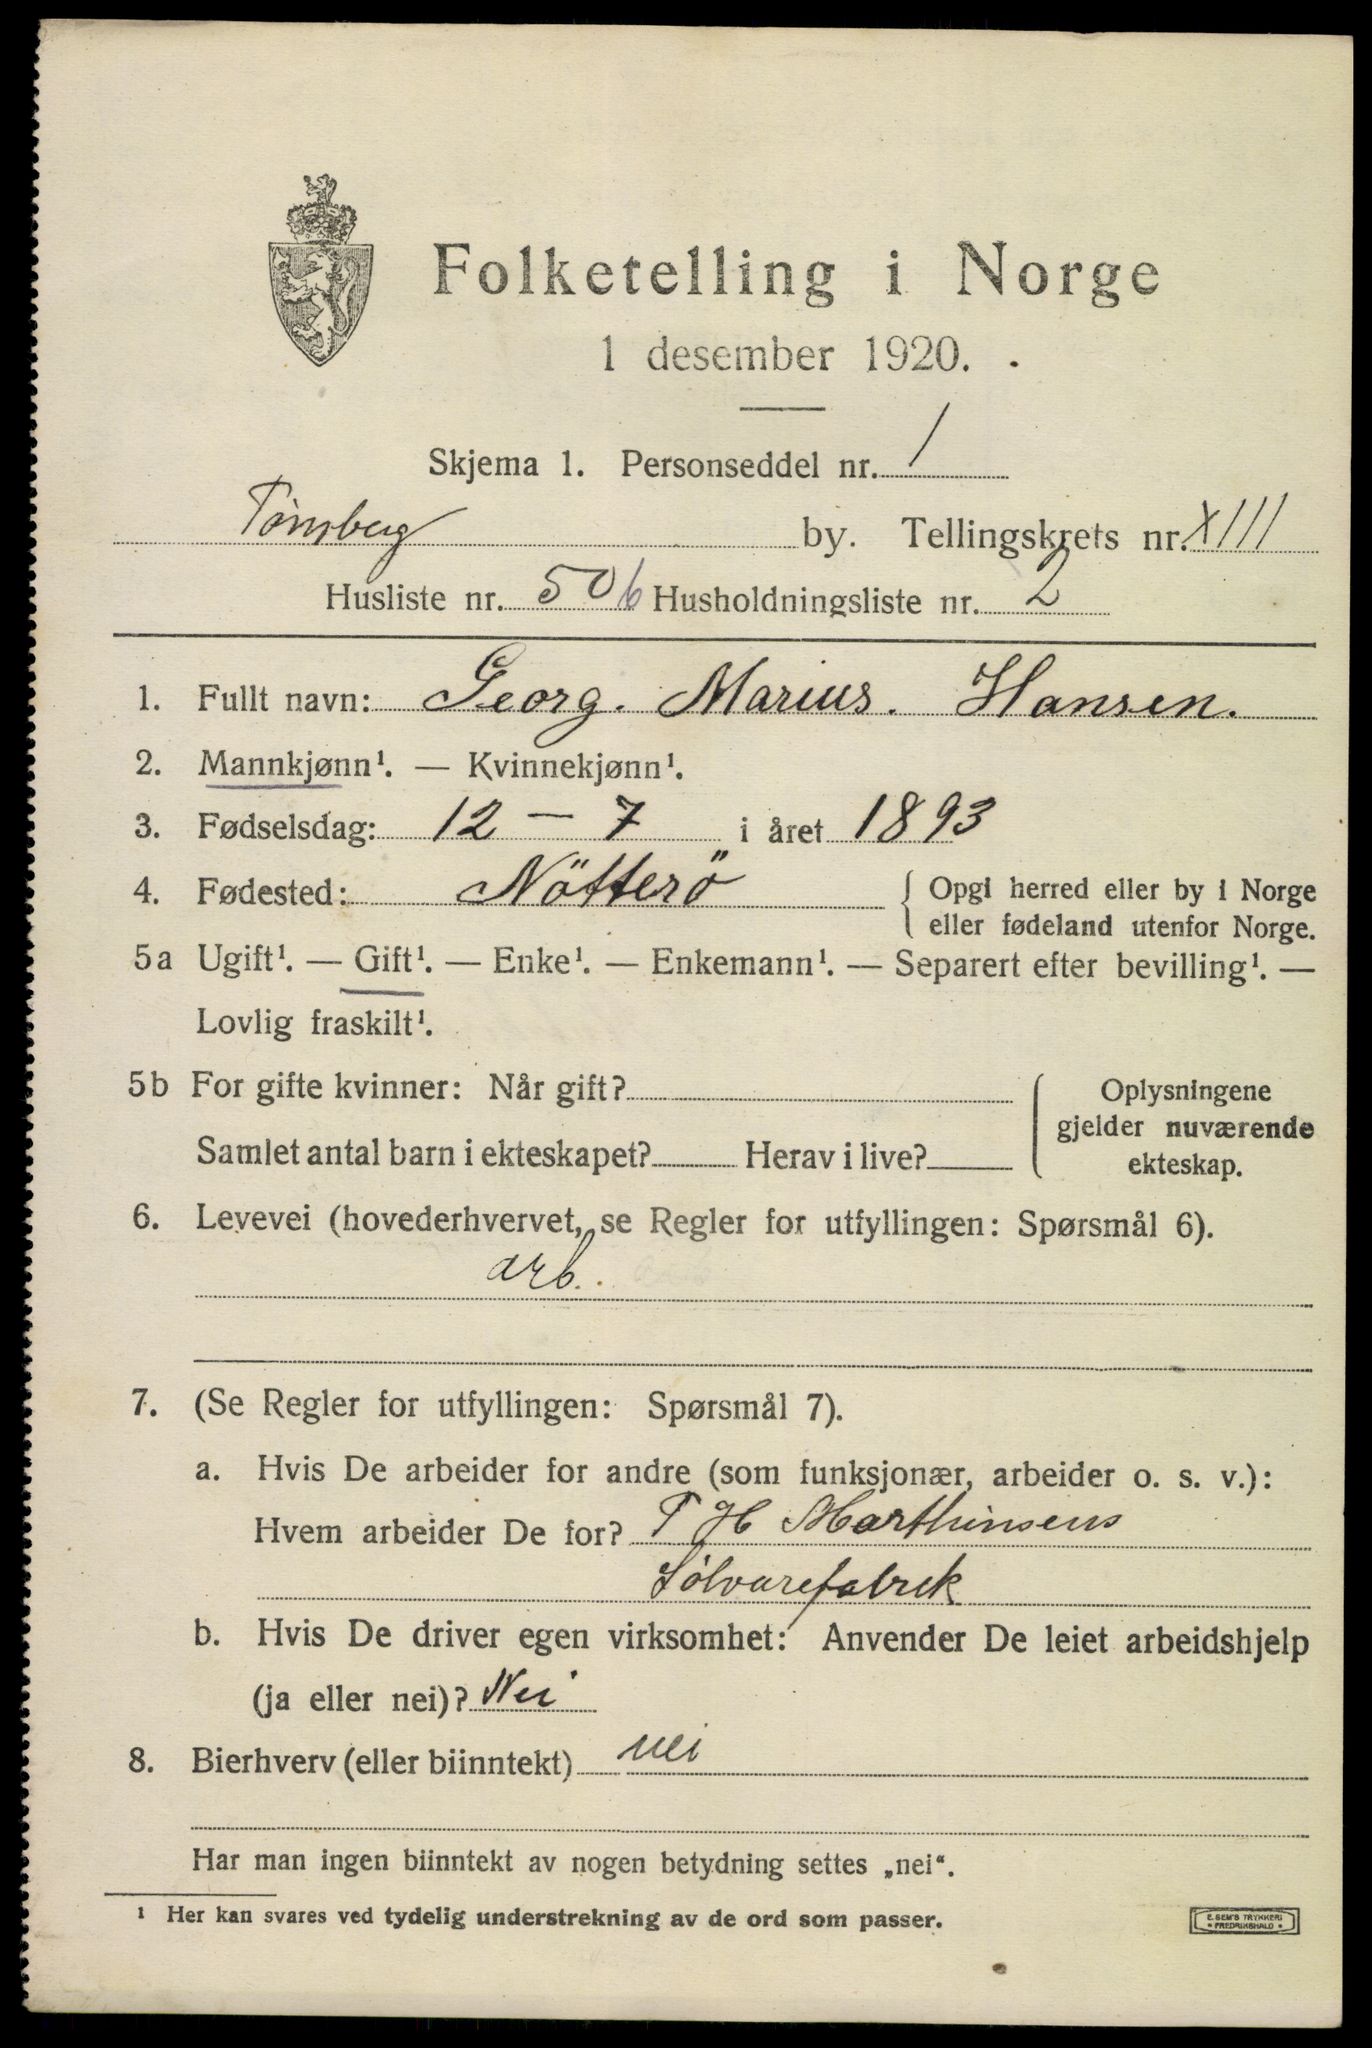 Folketelling i Norge
1 desember 1920.
Skjema 1. Personseddel nr. 1
Tönsberg by. Tellingskrets nr. XIII
Husliste nr. 50b Husholdningsliste nr. 2
1. Fullt navn: Georg. Marius. Hansen.
2. Mannkjønn¹. — Kvinnekjønn¹.
3. Fødselsdag: 12 – 7 i året 1893
4. Fødested: Nötterö { Opgi herred eller by i Norge
eller fødeland utenfor Norge.
5a Ugift¹. — Gift¹. — Enke¹. — Enkemann¹. — Separert efter bevilling¹. —
Lovlig fraskilt¹.
5b For gifte kvinner: Når gift?
Samlet antal barn i ekteskapet? Herav i live?
Oplysningene
gjelder nuværende
ekteskap.
6. Levevei (hovederhvervet, se Regler for utfyllingen: Spørsmål 6).
arb.
7. (Se Regler for utfyllingen: Spørsmål 7).
a. Hvis De arbeider for andre (som funksjonær, arbeider o. s. v.):
Hvem arbeider De for? T H Marthinsens
Sölvarefabrik
b. Hvis De driver egen virksomhet: Anvender De leiet arbeidshjelp
(ja eller nei)? Nei
8. Bierhverv (eller biinntekt) nei
Har man ingen biinntekt av nogen betydning settes „nei“.
¹ Her kan svares ved tydelig understrekning av de ord som passer.
E. SEM'S TRYKKERI
FREDRIKSHALD